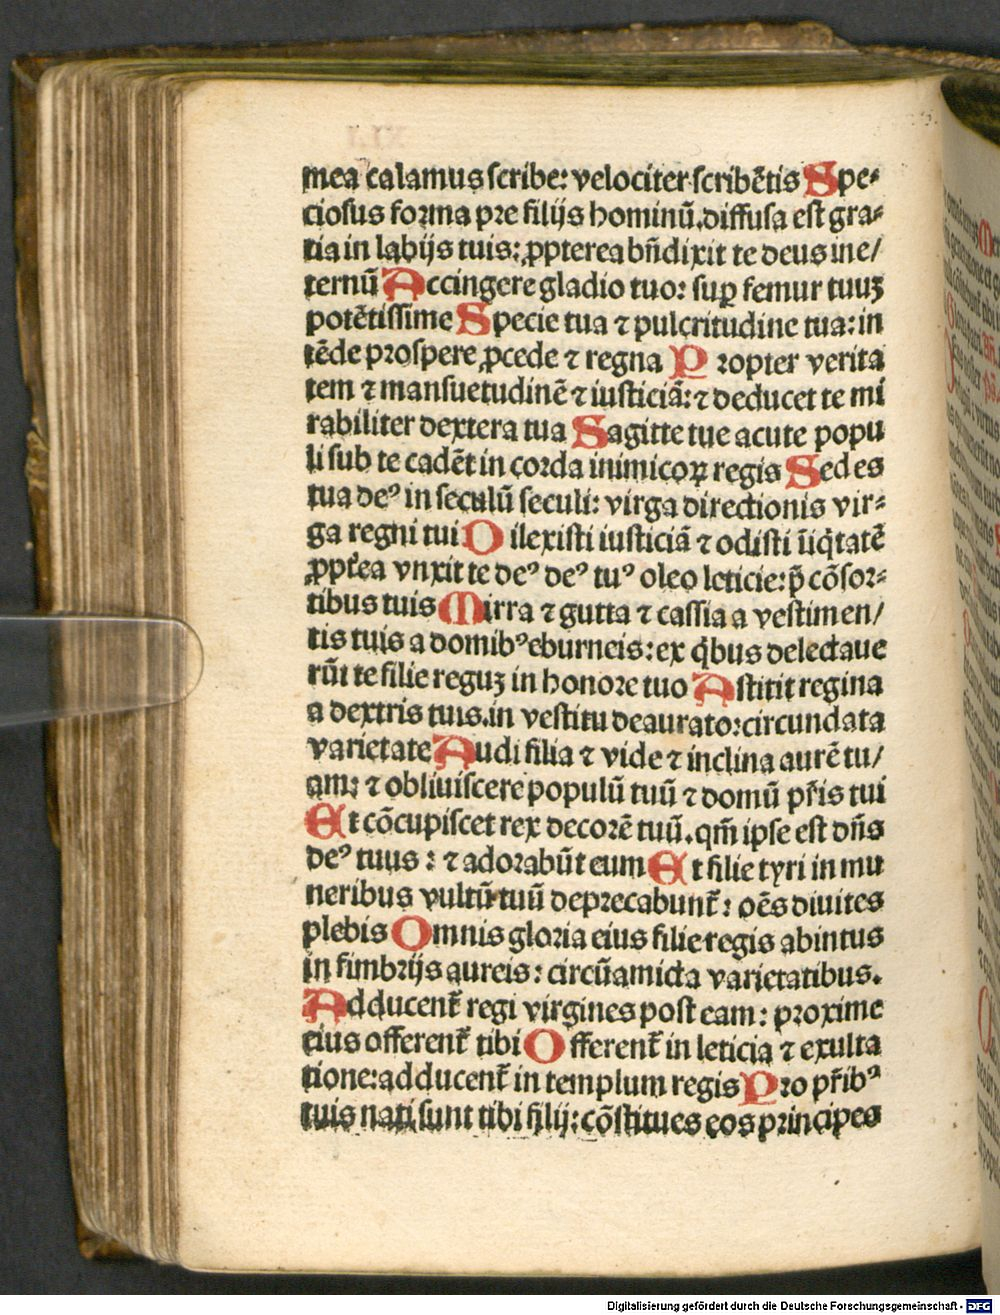 mea calamus scribe: velociter scribẽtis Spe⸗
ciosus forma pre filijs hominũ.diffusa est gra⸗
tia in labijs tuis: ꝓpterea bñdixit te deus in e/
ternũ Accingere gladio tuo: suꝑ femur tuuꝫ
potẽtissime Specie tua ⁊ pulcritudine tua: in
tẽde prospere ꝓcede ⁊ regna Propter verita
tem ⁊ mansuetudinẽ ⁊ iusticiã: ⁊ deducet te mi
rabiliter dextera tua Sagitte tue acute popu
li sub te cadẽt in corda inimicoꝝ regis Sedes
tua deꝰ in seculũ seculi: virga directionis vir⸗
ga regni tui Dilexisti iusticiã ⁊ odisti ĩiq̃tatẽ
ꝓpt̃ea vnxit te deꝰ deꝰ tuꝰ oleo leticie: p̃ cõsor⸗
tibus tuis Mirra ⁊ gutta ⁊ cassia a vestimen/
tis tuis a domibꝰ eburneis: ex q̃bus delectaue
rũt te filie reguꝫ in honore tuo Astitit regina
a dextris tuis.in vestitu deaurato: circundata
varietate Audi filia ⁊ vide ⁊ inclina aurẽ tu/
am: ⁊ obliuiscere populũ tuũ ⁊ domũ pr̃is tui
Et cõcupiscet rex decorẽ tuũ. qm̃ ipse est dñs
deꝰ tuus: ⁊ adorabũt eum Et filie tyri in mu
neribus vultũ tuũ deprecabunt̃: oẽs diuites
plebis Omnis gloria eius filie regis abintus
in fimbrijs aureis: circũamicta varietatibus.
Adducent̃ regi virgines post eam: proxime
eius offerent̃ tibi Offerent̃ in leticia ⁊ exulta
tione: adducent̃ in templum regis Pro pr̃ibꝰ
tuis nati sunt tibi filij: cõstitues eos principes
Digitalisierung gefördert durch die Deutsche Forschungsgemeinschaft - DFG